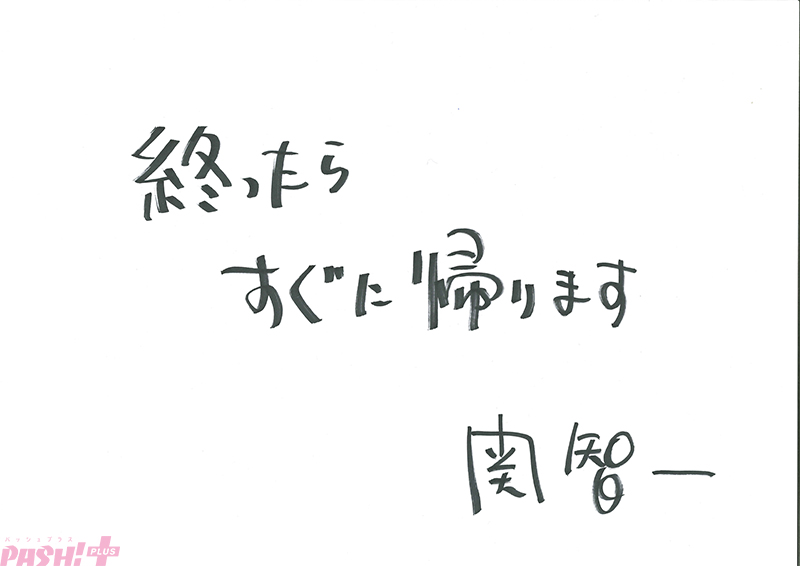 終ったら
すぐに帰ります
関智一
パッシュプラス
PASH!+ PLUS